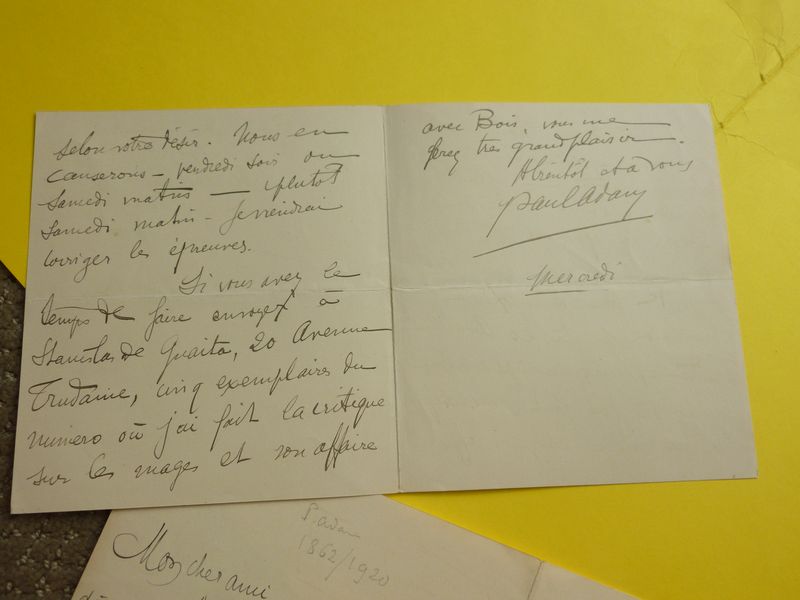 selon votre désir. Nous en
causerons – vendredi soir ou
samedi matin — plutôt
samedi matin – Je viendrai
corriger les épreuves.
Si vous avez le
temps de faire envoyer à
Stanislas de Guaita, 20 Avenue
Trudaine, cinq exemplaires du
numéro où j'ai fait la critique
sur les mages et son affaire
avec Bois, vous me
ferez très grand plaisir.
A bientôt et à vous
Paul Adam
Mercredi
P. Adam
1862/1920
Mon cher ami